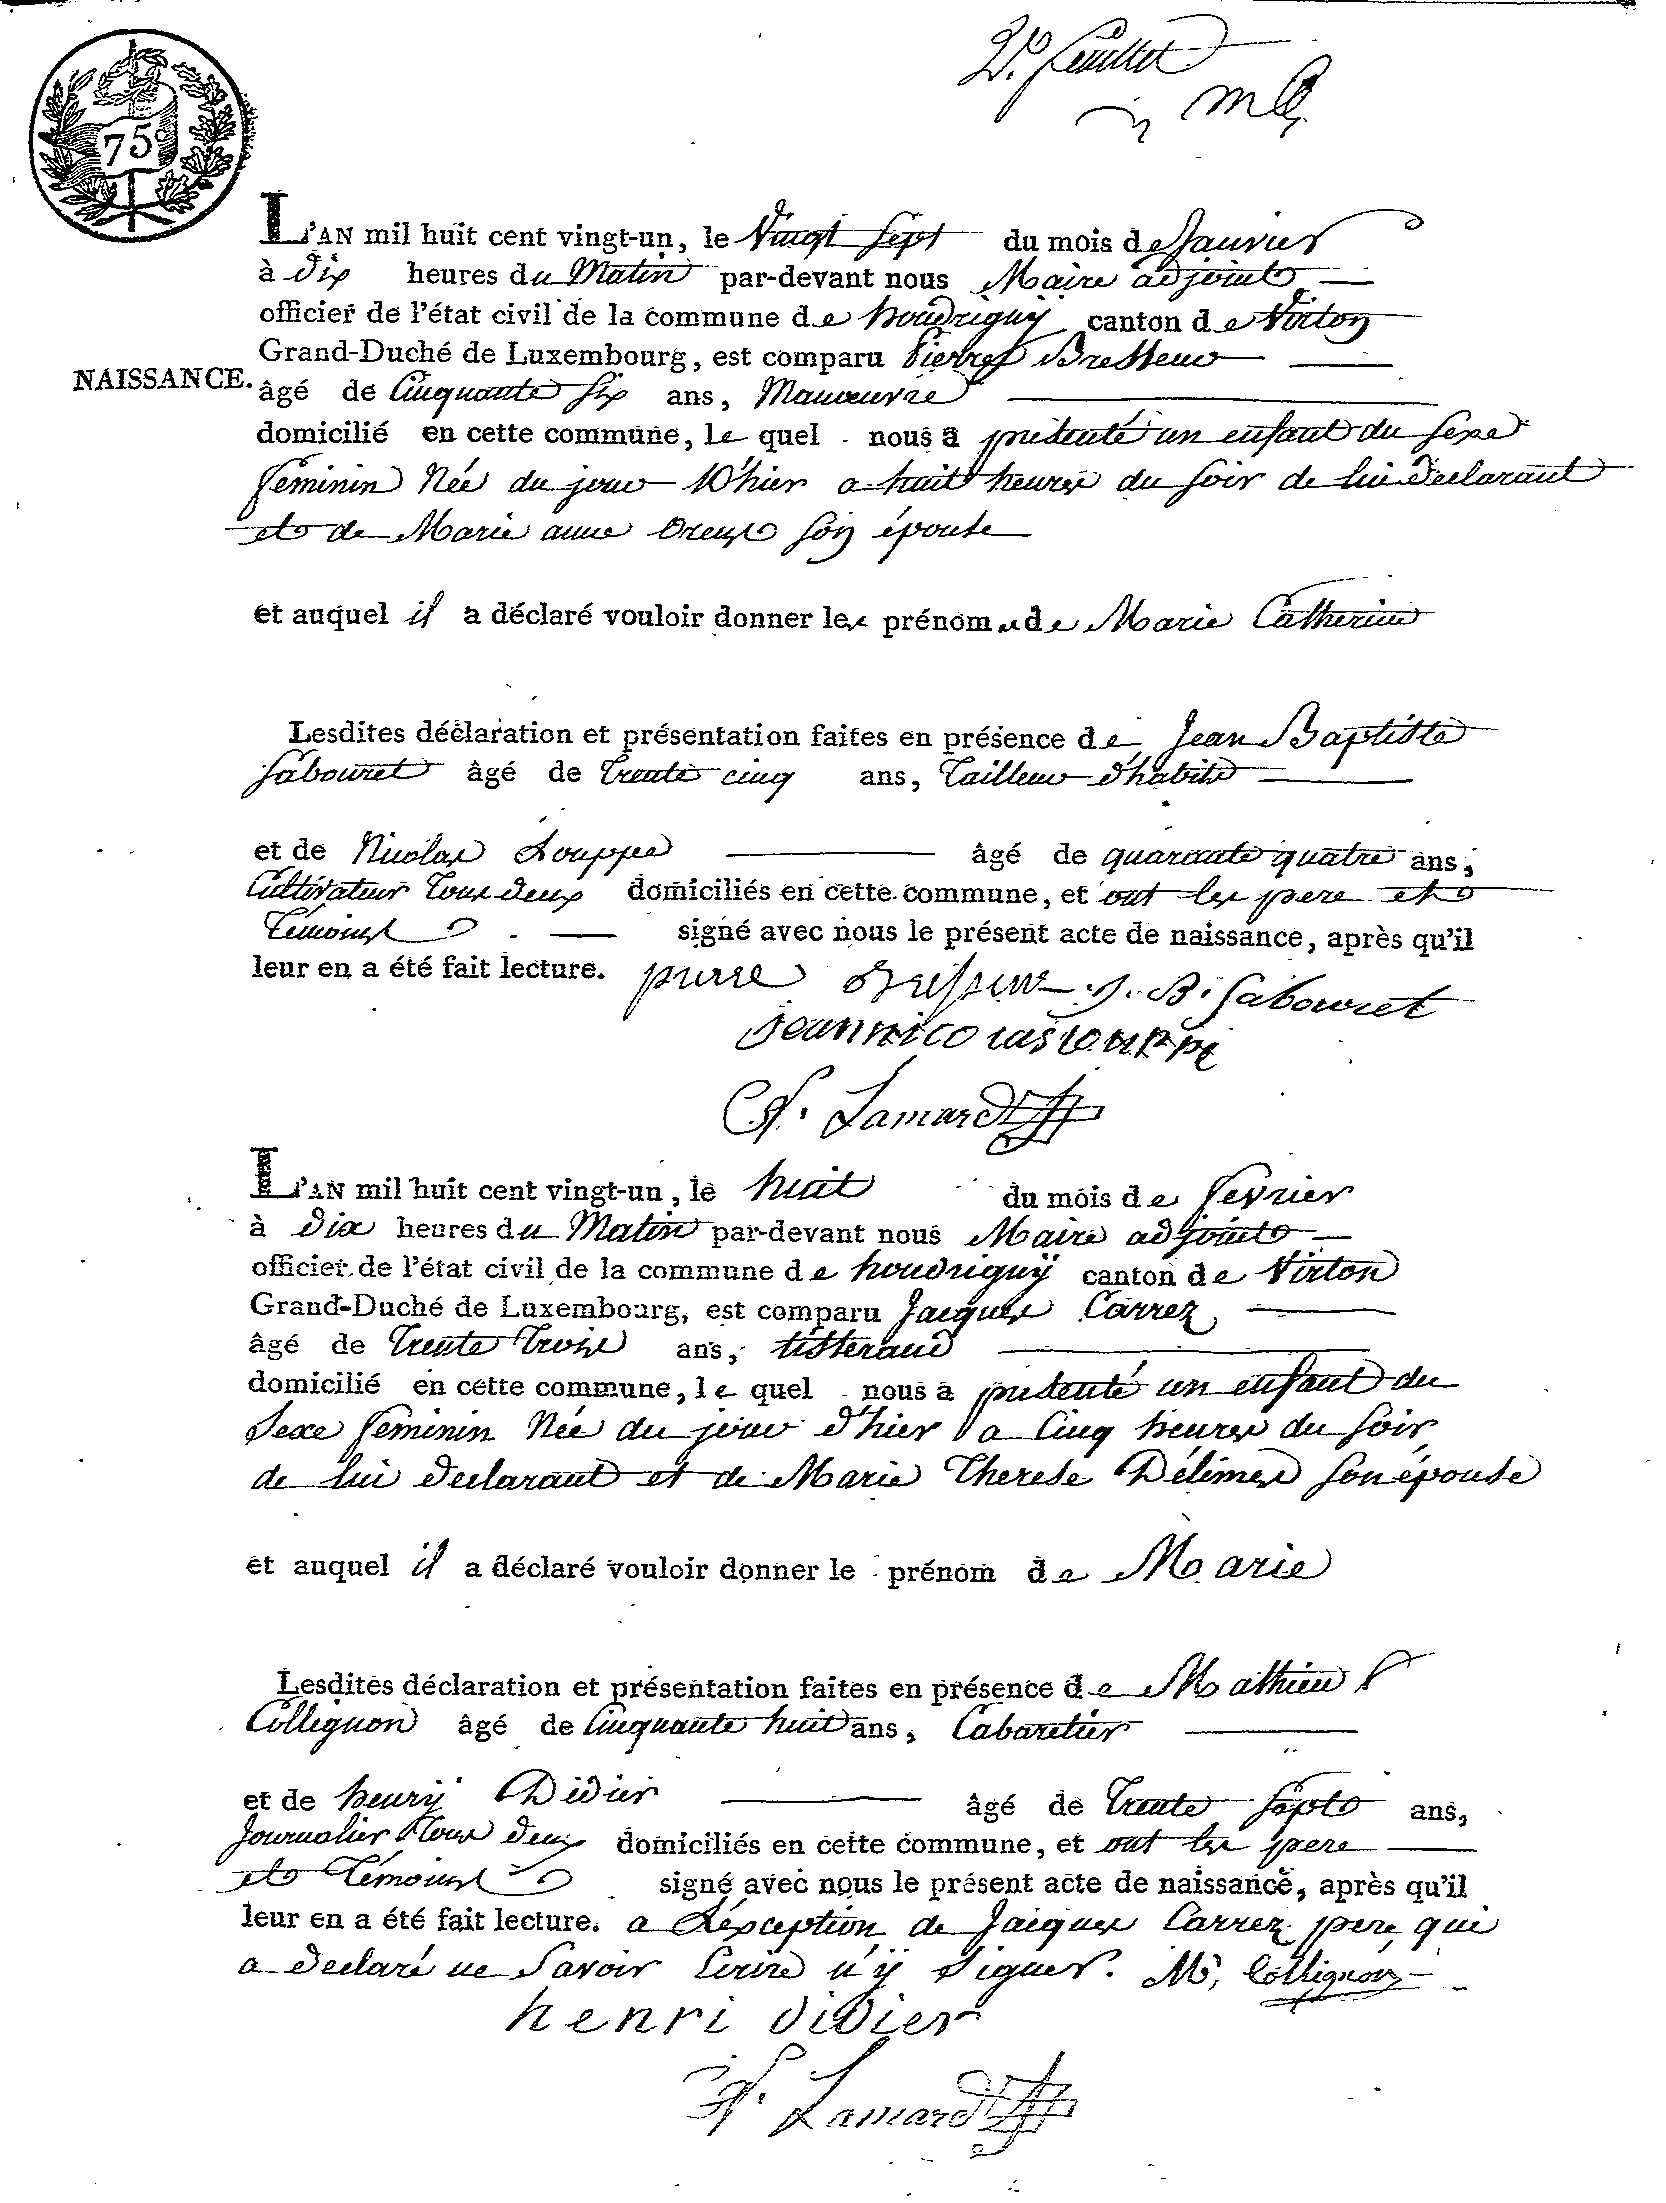 2e. feuillet
75c
L'AN mil huit cent vingt-un, le Vingt Sept du mois de Janvier
à dix heures du Matin par-devant nous Maire adjoint
officier de l'état civil de la commune de houdrigny canton de Virton
Grand-Duché de Luxembourg, est comparu Pierre Bresseur
NAISSANCE.
âgé de Cinquante Six ans, Manœuvre
domicilié en cette commune, le quel nous a présenté un enfant du Sexe
feminin Née du jour D'hier a huit heures du Soir de lui declarant
et de Marie anne son épouse
et auquel il a déclaré vouloir donner les prénoms de Marie Catherine
Lesdites déclaration et présentation faites en présence de Jean Baptiste
Sabouret âgé de Trente cinq ans, Tailleur d'habits
et de Nicolas Louppe âgé de quarante quatre ans,
Cultivateur Tous deux domiciliés en cette commune, et ont les pere et
Témoins signé avec nous le présent acte de naissance, après qu'il
leur en a été fait lecture. pierre J. B. Sabouret
jean nicolas louppe
Lamard
L'AN mil huit cent vingt-un, le huit du mois de fevrier
à dix heures du Matin par-devant nous Maire adjoint
officier de l'état civil de la commune de houdrignÿ canton de Virton
Grand-Duché de Luxembourg, est comparu Jacques Carrez
âgé de Trente Trois ans, tisserand
domicilié en cette commune, le quel nous a présenté un enfant du
Sexe feminin Née du jour d'hier a Cinq heures du Soir
de lui declarant et de Marie Therese Délimes son épouse
et auquel il a déclaré vouloir donner le prénom de Marie
Lesdites déclaration et présentation faites en présence de Mathieu
Collignon âgé de Cinquante huit ans, Cabaretier
et de henrÿ Didier âgé de Trente Sept ans,
Journalier Tous deux domiciliés en cette commune, et ont les pere
et Témoins signé avec nous le présent acte de naissance, après qu'il
leur en a été fait lecture. a L'éxception de Jacques Carrez pere, qui
a declaré ne Savoir Ecrire n'ÿ Signer. M. Collignon
henri didier
Lamard